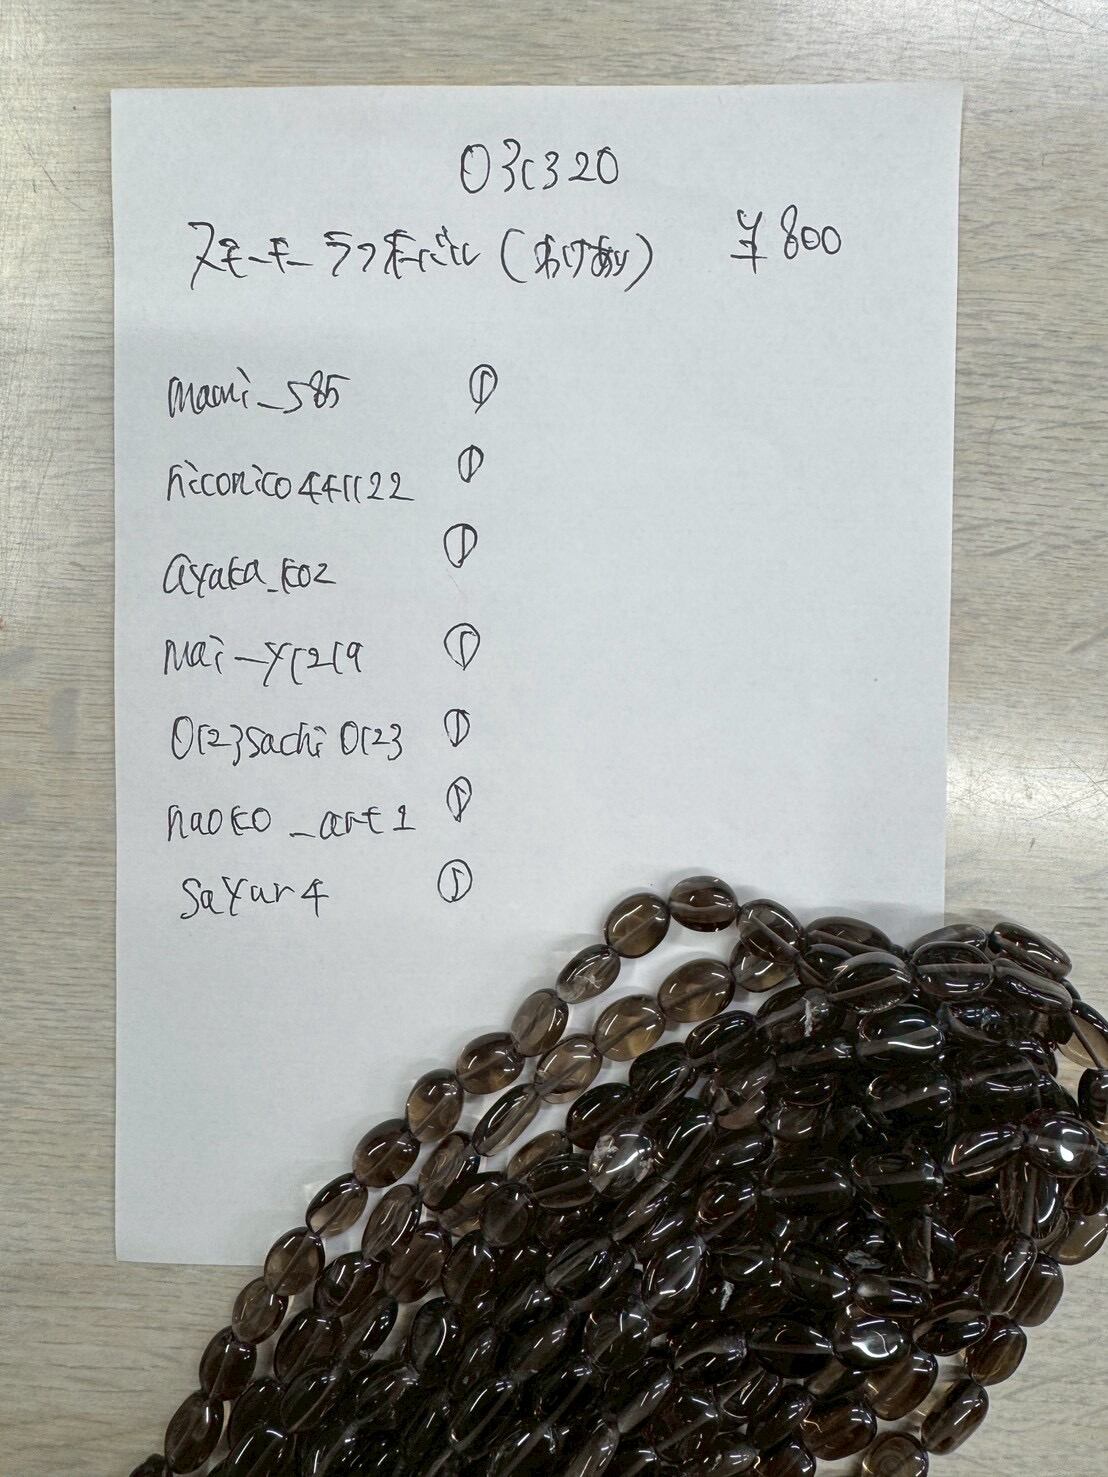 03c320
スモーキーラフオーバル (わけあり) ¥800
mami_s85 ①
niconico441122 ①
ayaka_ko2 ①
mai_y1219 ①
0123sachi0123 ①
naoko_art1 ①
sayur4 ①